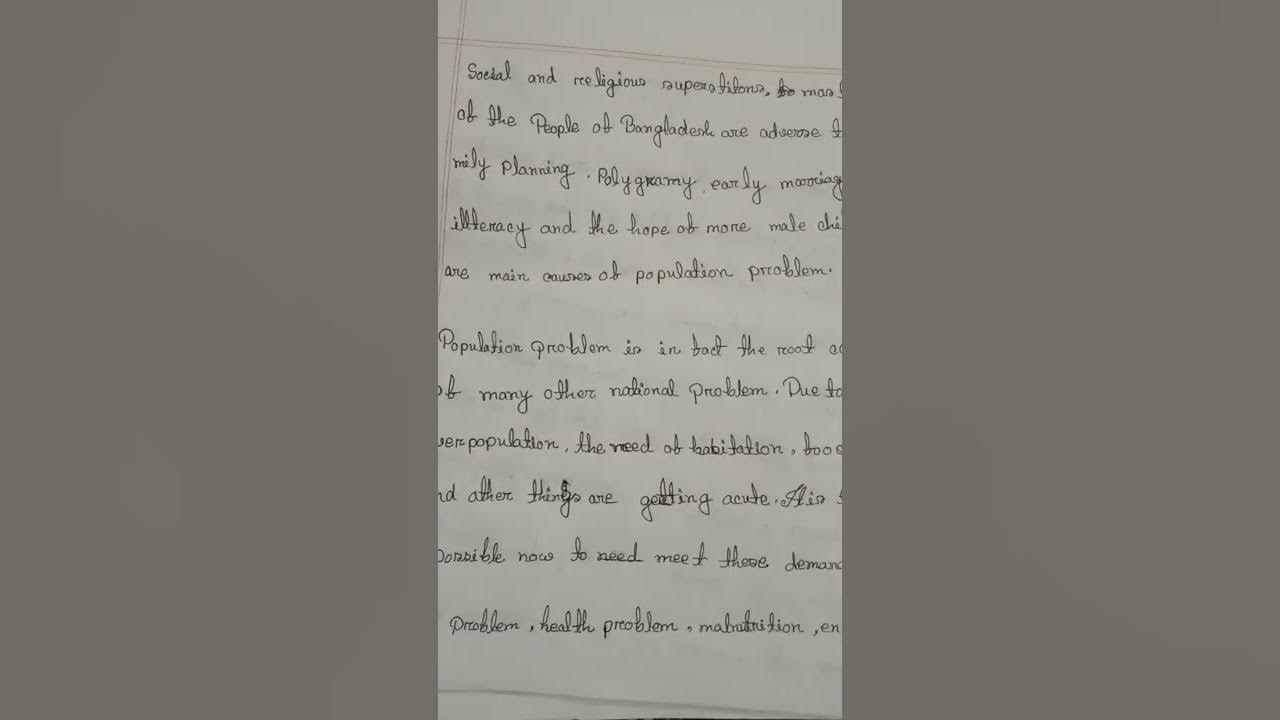 Social and religious superstitons, mos
of the People of Bangladesh are adverse t
mily Planning. Polygramy, early marriag
illteracy and the hope of more male chi
are main causes of population problem.
Population problem is in fact the root c
of many other national problem. Due to
verpopulation, the need of habitation, foo
nd other things are getting acute. It is
possible now to need meet these deman
problem, health problem, malnutrition, en